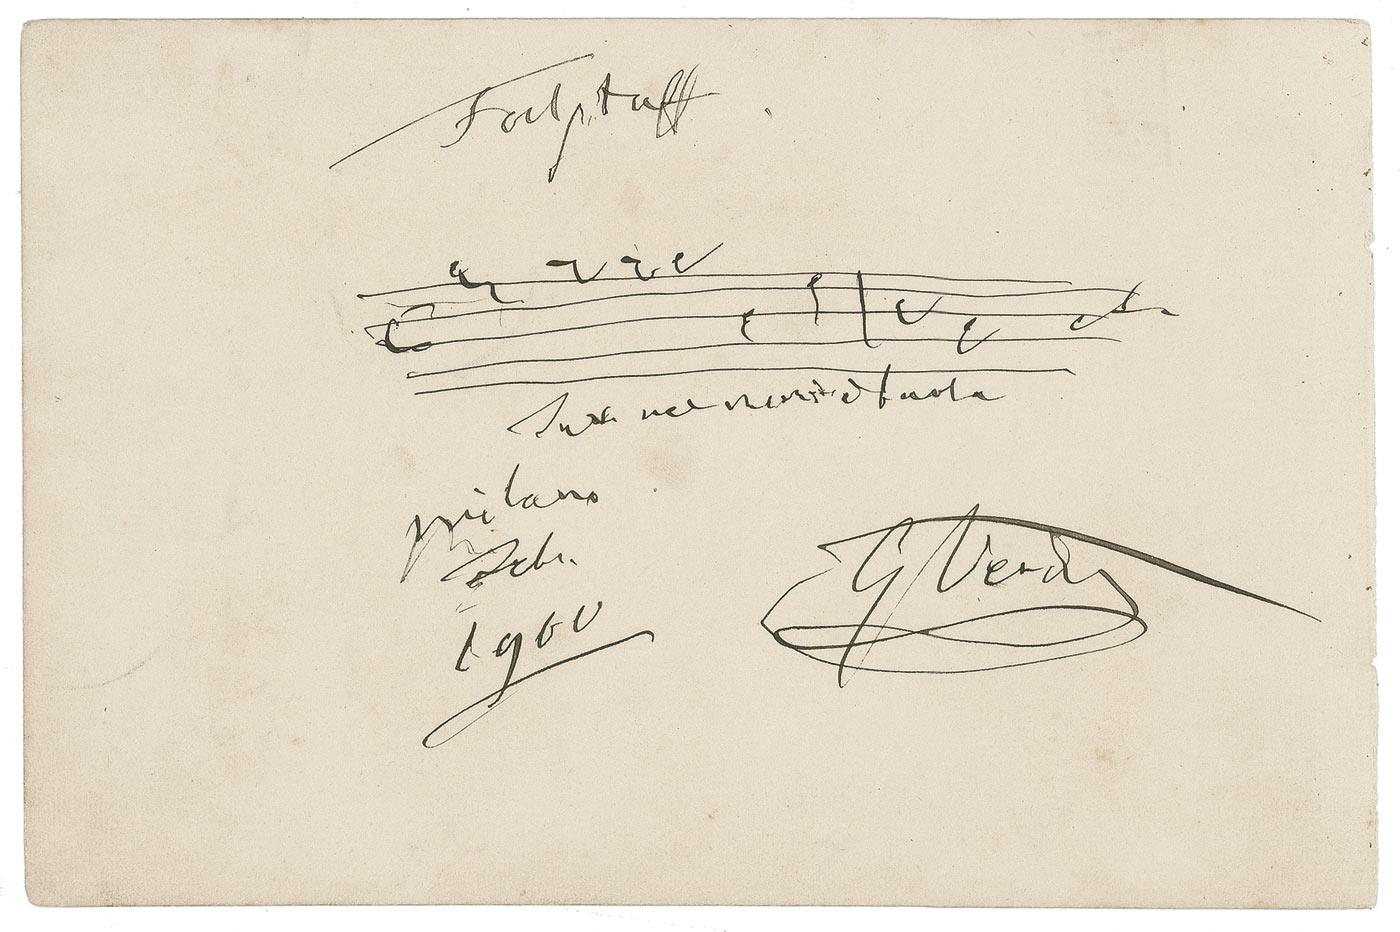 Falstaff
Tutto nel mondo è burla
Milano
Febr.
1900
G Verdi